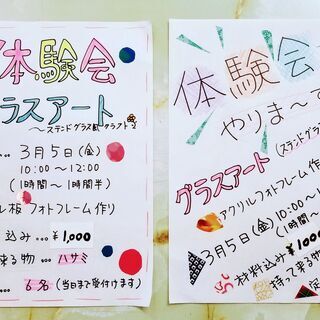 体験会
ラスアート
〜ステンドグラス風クラフト〜
3月5日(金)
10:00〜12:00
(1時間〜1時間半)
ル板 フォトフレーム作り
込み…¥1,000
来る物… ハサミ
… 6名(当日まで受付けます)
体験会
やりま〜
グラスアート(ステンドグラ
アクリルフォトフレーム作
3月5日(金)10:00〜1
(1時間〜
材料込み…¥1000
持って来る物
定